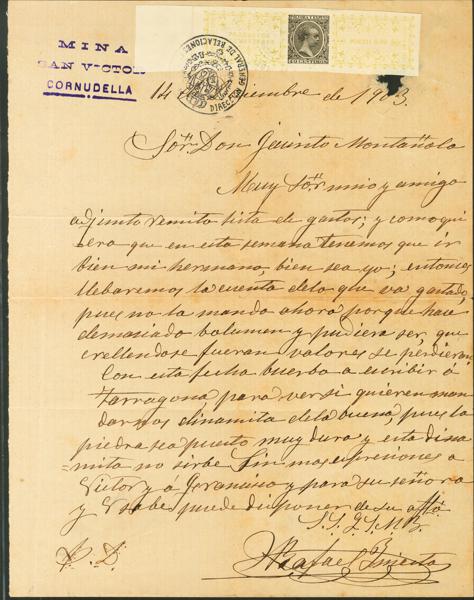 MINA
SAN VICTOR
CORNUDELLA
DIRECCION GENERAL DE RELACIONES
14 de Diciembre de 1903.
Sor. Don Jacinto Montañola
Muy Sor. mio y amigo
adjunto remito lista de gastos; y como qui
era que en esta semana tenemos que ir
bien mi hermano, bien sea yo; entonces
llebaremos la cuenta delo que va gastado,
pues no la mando ahora porque hace
demasiado bolumen y pudiera ser, que
crellendose fueran valores se perdieran
Con esta fecha buerbo a escribir á
Tarragona, para versi quieren man
darnos dinamita dela buena, pues la
piedra sea puesto muy dura y esta dina
mita no sirbe Sin mas espresiones a
Victor y á Gerancio y para su señora
y V sabe puede disponer de su affo
S. S. Q. S. M. B.
Rafael
P. D.